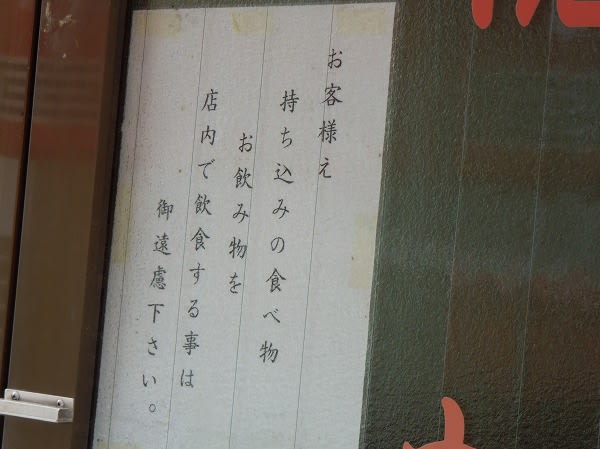 お客様え
持ち込みの食べ物
お飲み物を
店内で飲食する事は
御遠慮下さい。